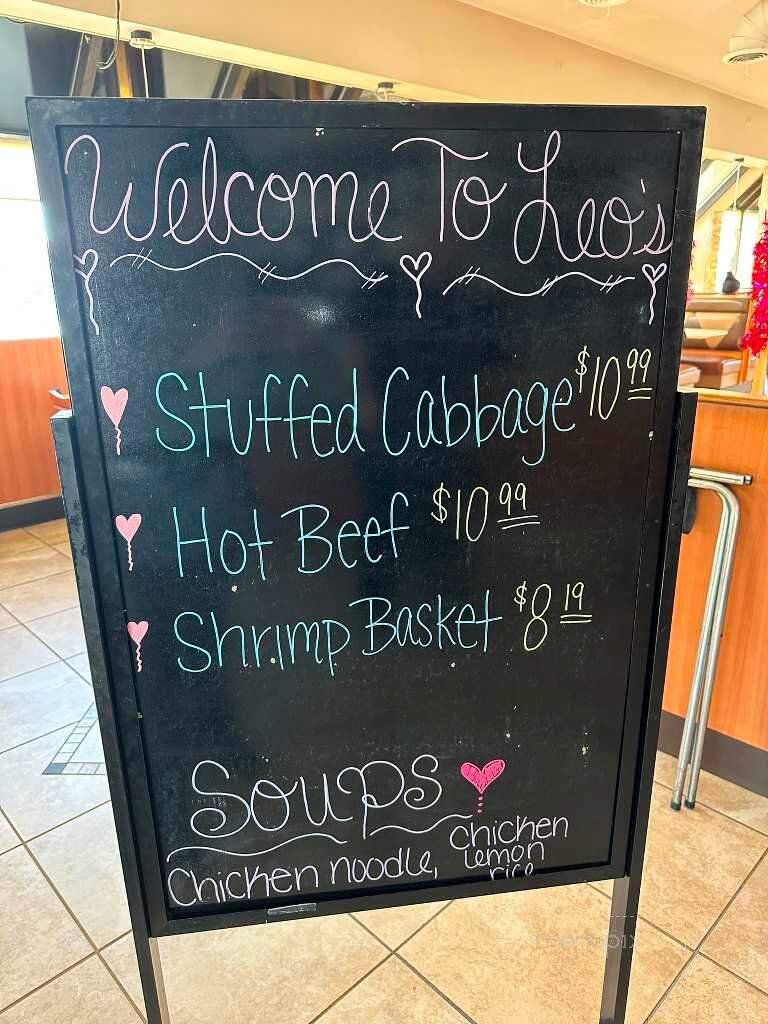 Welcome To Leo's
Stuffed Cabbage $10 99
Hot Beef $10 99
Shrimp Basket $8 19
Soups
Chicken noodle, chicken
lemon
rice